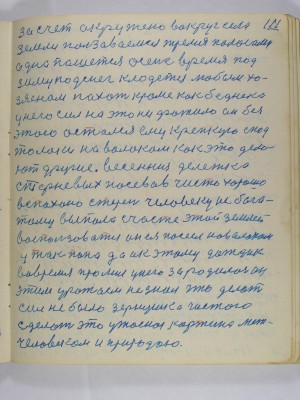 за счет окружено вокруг села
земли ползаваемся тремя полосами
одна пашется осень время под
зиму под снег кладется любым хо-
зяеном пахот кроме как бедняка
у него сил на это ни
этого остался ему крепкую
полоси на волоком как это дела-
ют другие. весенния дележка
старневых посевов чисто хорошо
вспахано ступен человеку не бога-
тому выпала счасте этой землей
воспользоватся он ея посеел наволоком
у так попа да и к этому дождик
вовремя промил у него зародилось он
этим урожаем не знал што делат
сил не было зерньшка чистого
сделат это ужасная картина меж-
человеком и природою.